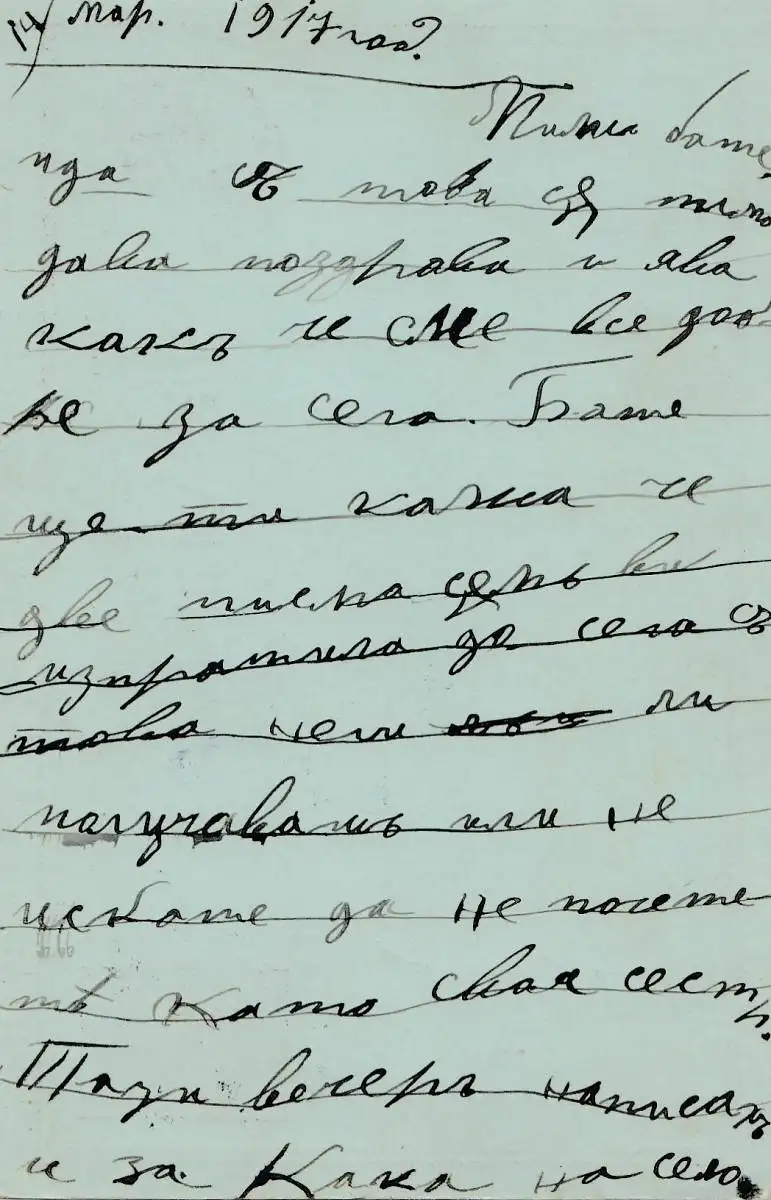 14 мар. 1917 год?
Мили бате,
ида съ това си писмо
дави поздрави и ява
какъ че сме все доб
ре за сега. Бате
ще ти кажа че
две писма съмь ви
изпратила до сега съ
това нели ли
получавашь или не
искате да не посете
тѣ като своя сестр.
Тази вечерь написахъ
и за Кака на село.